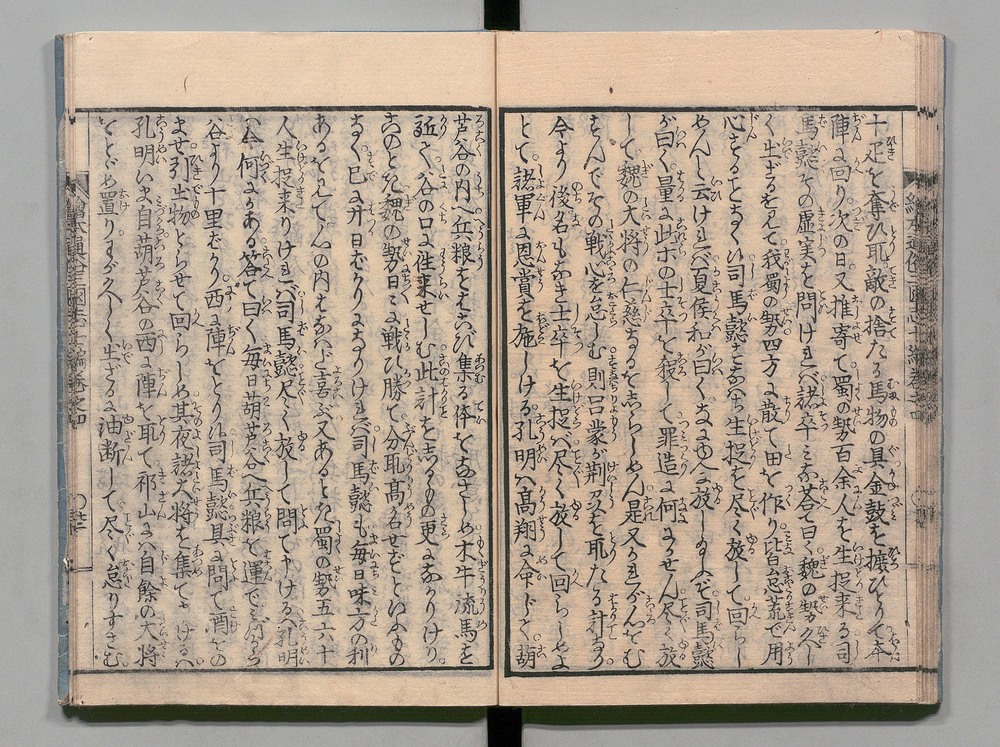 十疋を奪ひ取敵の捨たる馬物の具金鼓を擴ひとりて本
陣に回り次の日又推寄て蜀の勢百余人を生捉来る司
馬懿その虚実を問けれバ諸卒ミな荅て曰く魏の勢久し
く生ざるを見て我蜀の勢四方に散て田を作り皆怠荒て用
心するとなし司馬懿すなハち生捉を尽く放して回らし
めんと云けれバ夏侯和が曰くなにゆへ放し司馬懿
が曰く量に此ホの士卒を殺して罪造に何かせん尽く放
して魏の大将の仁慈なるをしらしめん是又かれがんをむ
せんでその戦心を怠しむ則呂蒙が荆刕を取たる計なり
今より後名もなき士卒を生捉バ尽く放して回らしめよ
とて諸軍に恩賞を施しける孔明ハ高翔に命じて葫
芦谷の内へ兵粮をはこび集る体をなさしめ木牛流馬を
近く谷の口に往来せしむ此計をしるもの更になかりけり
このとき魏の勢日に戦ひ勝て分取高名せずといふもの
なく已に廾日ばかりになりけれバ司馬懿も毎日味方の利
あるを見て心の内すなハち喜ぶ又あるとき蜀の勢五六十
人生捉来りけれバ司馬懿尽く放して問て申けるハ孔明
今何にかある荅て曰く毎日葫芦谷へ兵粮を運で
谷より十里ばかり西に陣をとりぬ司馬懿具に問て酒をの
ませ引出物とらせて回らしめ其夜諸大将を集て申けるハ
孔明いま自葫芦谷の西に陣を取て祁山にハ自餘の大将
をとゞめ置りわが久しく生ざるに油断して尽く怠りすさむ